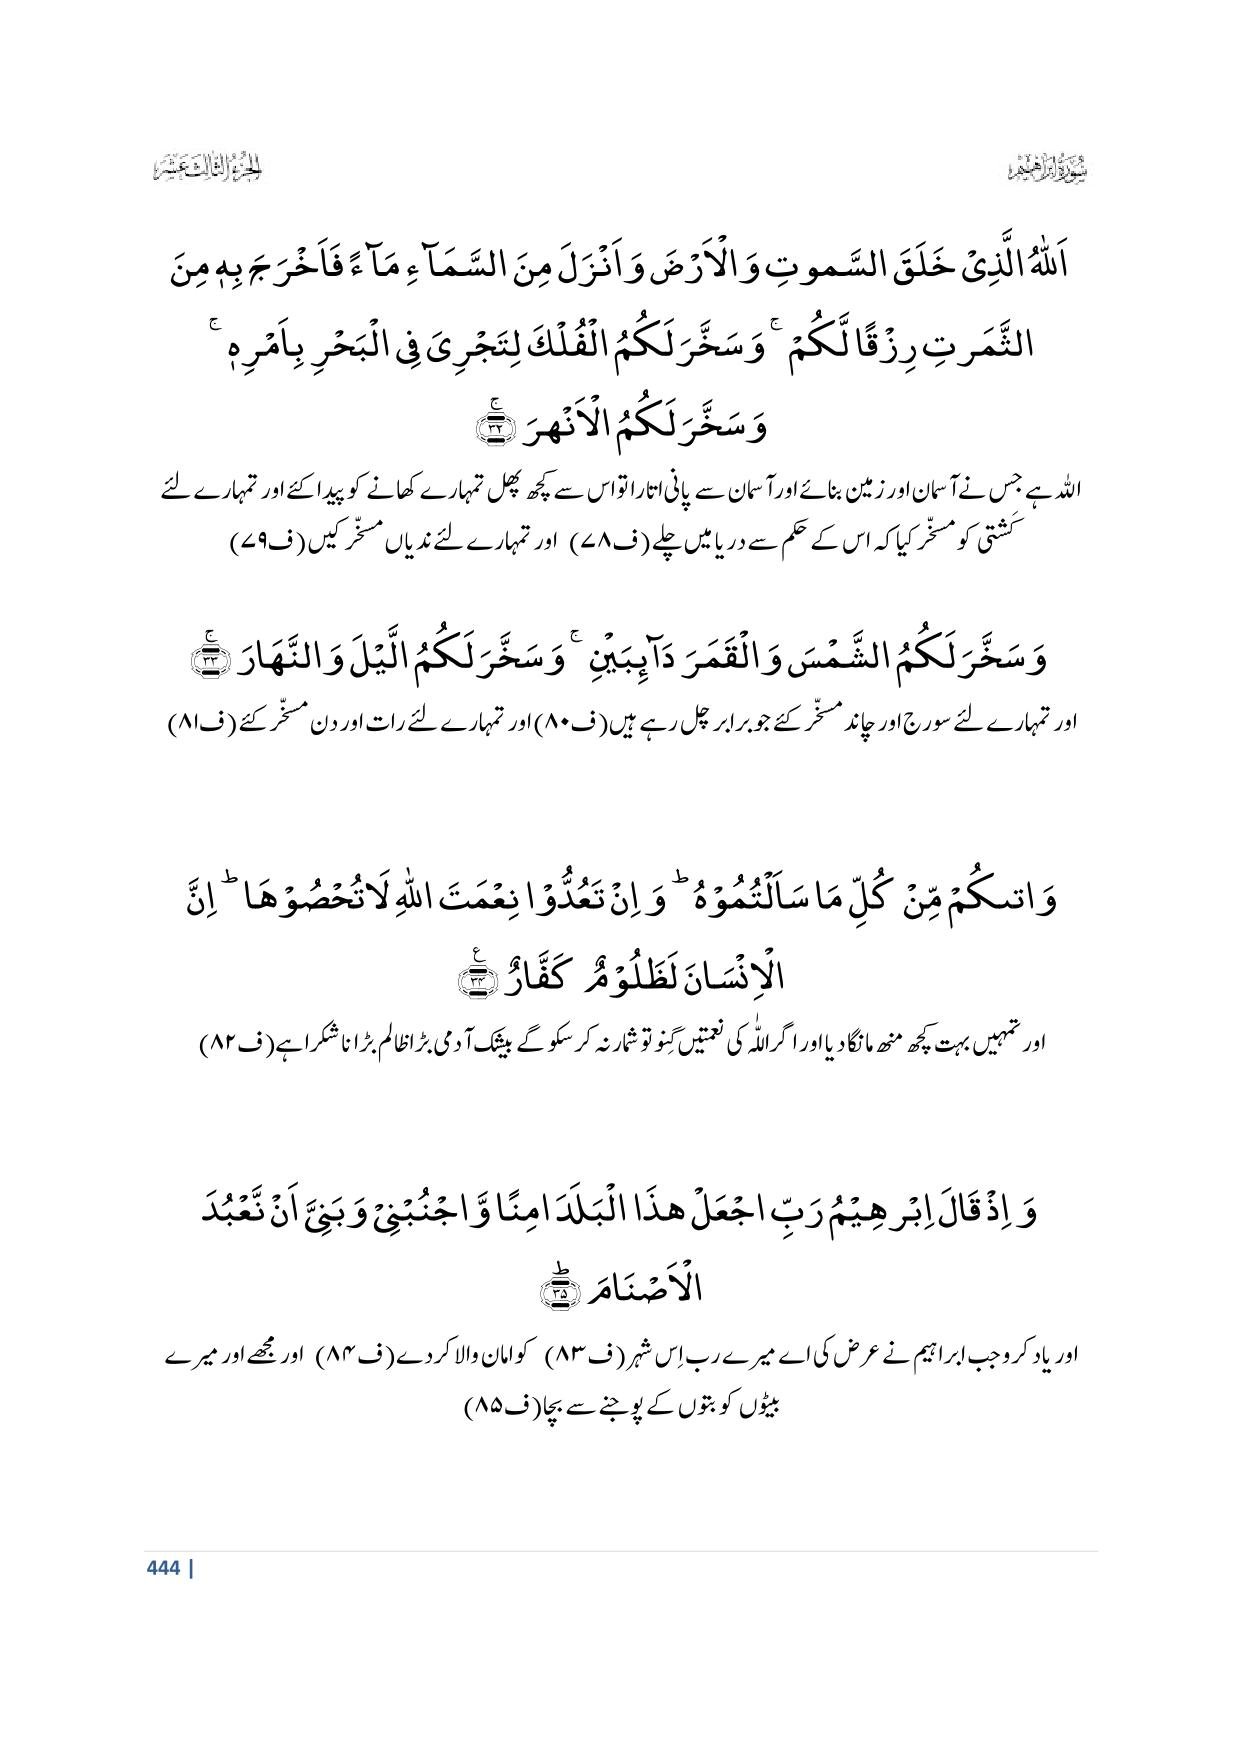 سُوۡرَةُ اِبۡرَاهِیۡم
الجزء الثالث عشر
اَللّٰهُ الَّذِیْ خَلَقَ السَّموتِ وَ الْاَرْضَ وَ اَنْزَلَ مِنَ السَّمَآءِ مَآءً فَاَخْرَجَ بِهٖ مِنَ
الثَّمَرتِ رِزْقًا لَّكُمْ ۚ وَ سَخَّرَ لَكُمُ الْفُلْكَ لِتَجْرِیَ فِی الْبَحْرِ بِاَمْرِهٖ ۚ
وَ سَخَّرَ لَكُمُ الْاَنْهرَ ۚ ﴿۳۲﴾
اللہ ہے جس نے آسمان اور زمین بنائے اور آسمان سے پانی اتارا تو اس سے کچھ پھل تمہارے کھانے کو پیدا کئے اور تمہارے لئے
کَشتی کو مسخّر کیا کہ اس کے حکم سے دریا میں چلے (ف۷۸) اور تمہارے لئے ندیاں مسخّر کیں (ف۷۹)
وَ سَخَّرَ لَكُمُ الشَّمْسَ وَ الْقَمَرَ دَآىِٕبَیْنِ ۚ وَ سَخَّرَ لَكُمُ الَّیْلَ وَ النَّهَارَ ۚ ﴿۳۳﴾
اور تمہارے لئے سورج اور چاند مسخّر کئے جو برابر چل رہے ہیں (ف۸۰) اور تمہارے لئے رات اور دن مسخّر کئے (ف۸۱)
وَ اتىكُمْ مِّنْ كُلِّ مَا سَاَلْتُمُوْهُ ؕ وَ اِنْ تَعُدُّوْا نِعْمَتَ اللّٰهِ لَا تُحْصُوْهَا ؕ اِنَّ
الْاِنْسَانَ لَظَلُوْمٌ كَفَّارٌ ۠ ﴿۳۴﴾
اور تمہیں بہت کچھ منھ مانگا دیا اور اگر اللّٰہ کی نعمتیں گِنو تو شمار نہ کر سکو گے بیشک آدمی بڑا ظالم بڑا ناشکرا ہے (ف۸۲)
وَ اِذْ قَالَ اِبْرهِیْمُ رَبِّ اجْعَلْ هذَا الْبَلَدَ امِنًا وَّ اجْنُبْنِیْ وَ بَنِیَّ اَنْ نَّعْبُدَ
الْاَصْنَامَ ؕ ﴿۳۵﴾
اور یاد کرو جب ابراہیم نے عرض کی اے میرے رب اِس شہر (ف۸۳) کو امان والا کر دے (ف۸۴) اور مجھے اور میرے
بیٹوں کو بتوں کے پوجنے سے بچا (ف۸۵)
444 |